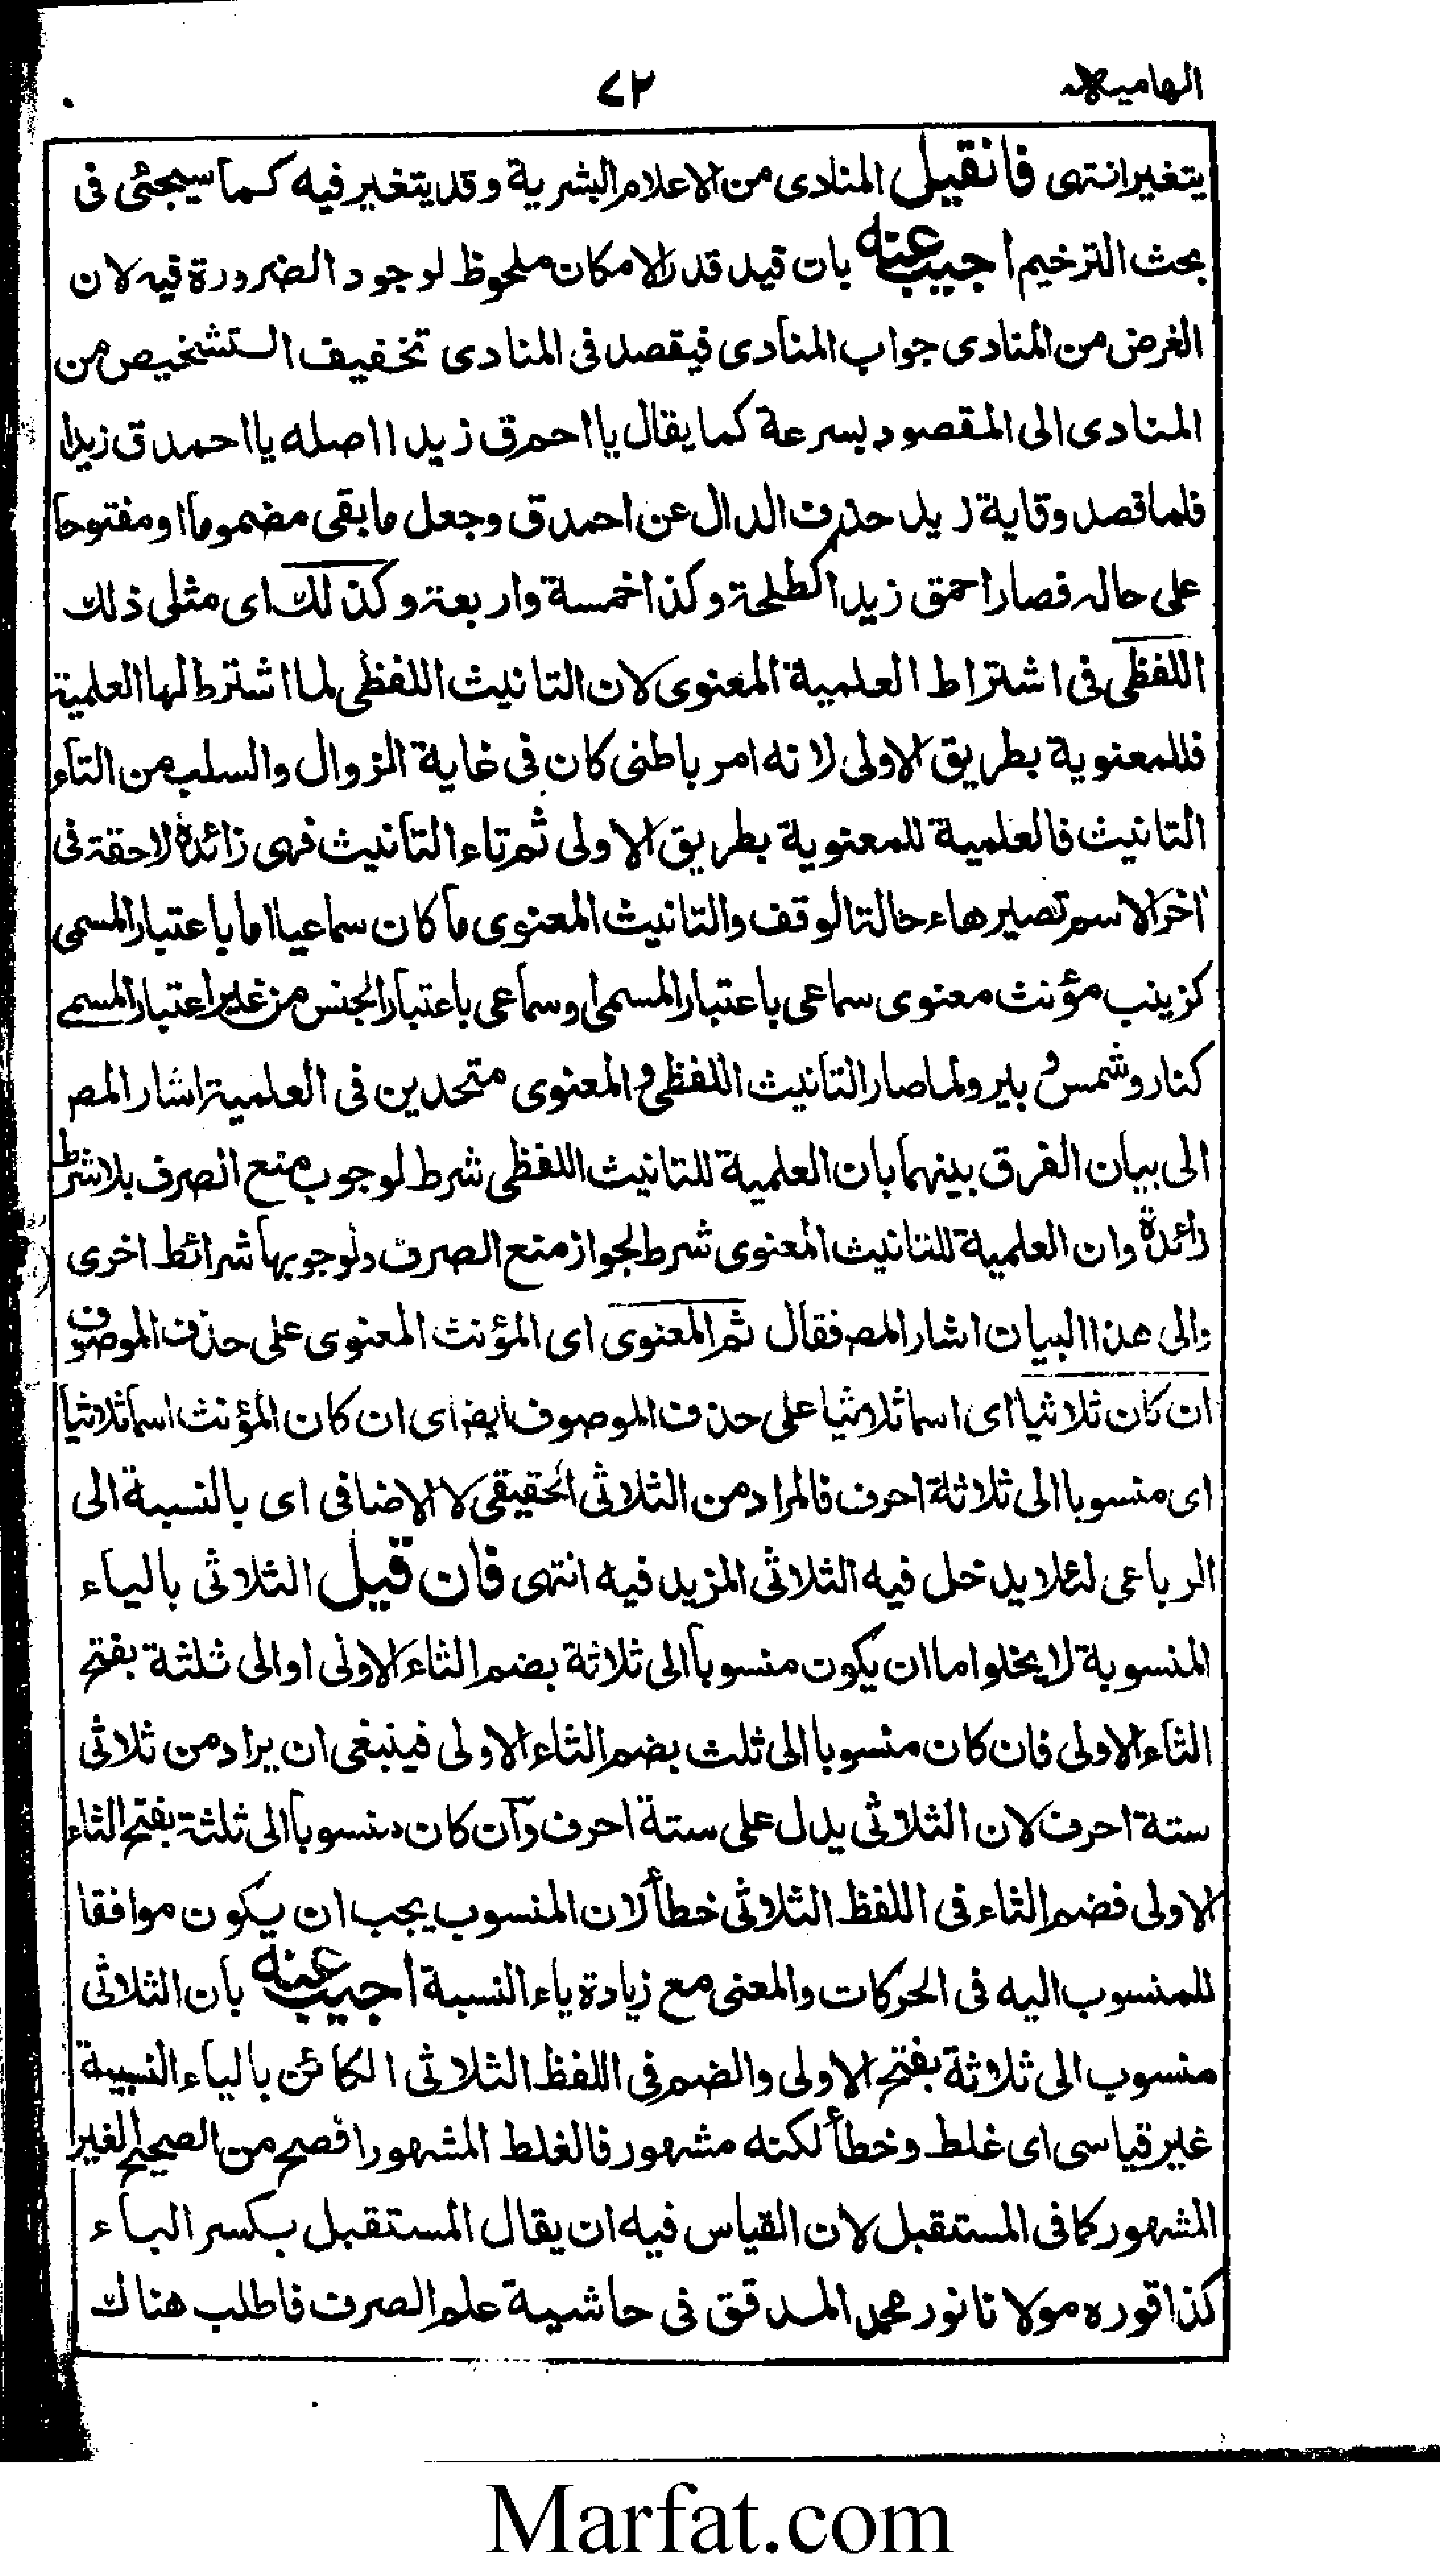 الهامية
٧٢
يتغير انتهى فان قيل المنادى من الاعلام البشرية وقد يتغير فيه كما سيجئى فى
بحث الترخيم اجيب عنه بان قيد قدر الامكان ملحوظ لوجود الضرورة فيه لان
الغرض من المنادى جواب المنادى فيقصد فى المنادى تخفيف التشخيص من
المنادى الى المقصود بسرعة كما يقال يا احم ق زيدا اصله يا احمد ق زيدا
فلما قصد وقاية زيد حذف الدال عن احمد ق وجعل ما بقى مضموما او مفتوحا
على حاله فصار احمق زيدا كطلحة وكذا خمسة واربعة وكذلك اى مثلى ذلك
اللفظى فى اشتراط العلمية المعنوى لان التانيث اللفظى لما اشترط لها العلمية
فللمعنوية بطريق الاولى لانه امر باطنى كان فى غاية الزوال والسلب من التاء
التانيث فالعلمية للمعنوية بطريق الاولى ثم تاء التانيث فهى زائدة لاحقة فى
اخر الاسم تصير هاء حالة الوقف والتانيث المعنوى ما كان سماعيا اما باعتبار المسمى
كزينب مؤنث معنوى سماعى باعتبار المسمى او سماعى باعتبار الجنس من غير اعتبار المسمى
كنار وشمس و بير ولما صار التانيث اللفظى والمعنوى متحدين فى العلمية اشار المص
الى بيان الفرق بينهما بان العلمية للتانيث اللفظى شرط لوجوب منع الصرف بلا شرط
زائدة وان العلمية للتانيث المعنوى شرط لجواز منع الصرف ولوجوبها شرائط اخرى
والى هذا البيان اشار المص فقال ثم المعنوى اى المؤنث المعنوى على حذف الموصوف
ان كان ثلاثيا اى اسما ثلاثيا على حذف الموصوف ايضا اى ان كان المؤنث اسما ثلاثيا
اى منسوبا الى ثلاثة احرف فالمراد من الثلاثى الحقيقى لا الاضافى اى بالنسبة الى
الرباعى لئلا يدخل فيه الثلاثى المزيد فيه انتهى فان قيل الثلاثى بالياء
المنسوبة لا يخلوا اما ان يكون منسوبا الى ثلاثة بضم الثاء الاولى او الى ثلثة بفتح
الثاء الاولى فان كان منسوبا الى ثلث بضم الثاء الاولى فينبغى ان يراد من ثلاثى
ستة احرف لان الثلاثى يدل على ستة احرف وان كان منسوبا الى ثلثة بفتح الثاء
الاولى فضم الثاء فى اللفظ الثلاثى خطأ لان المنسوب يجب ان يكون موافقا
للمنسوب اليه فى الحركات والمعنى مع زيادة ياء النسبة اجيب عنه بان الثلاثى
منسوب الى ثلاثة بفتح الاولى والضم فى اللفظ الثلاثى الكائن بالياء النسبية
غير قياسى اى غلط وخطأ لكنه مشهور فالغلط المشهور افصح من الصحيح الغير
المشهور كما فى المستقبل لان القياس فيه ان يقال المستقبل بكسر الباء
كذا قوره مولانا نور محمد المدقق فى حاشية علم الصرف فاطلب هناك
Marfat.com